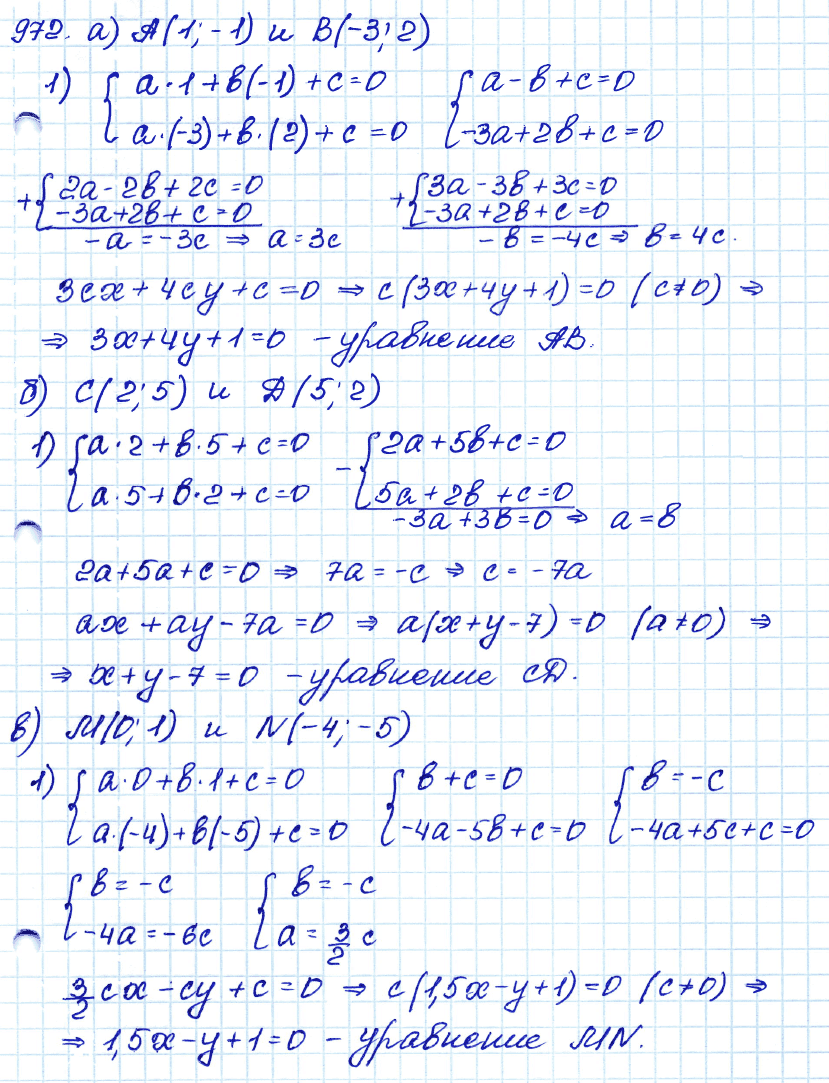 972. а) A(1; -1) и B(-3; 2)
1) { a·1+b(-1)+c=0 { a-b+c=0
a·(-3)+b·(2)+c=0 -3a+2b+c=0
+{ 2a-2b+2c=0 +{ 3a-3b+3c=0
-3a+2b+c=0 -3a+2b+c=0
-a=-3c ⇒ a=3c -b=-4c ⇒ b=4c.
3cx+4cy+c=0 ⇒ c(3x+4y+1)=0 (c≠0) ⇒
⇒ 3x+4y+1=0 - уравнение AB.
б) C(2; 5) и D(5; 2)
1) { a·2+b·5+c=0 -{ 2a+5b+c=0
a·5+b·2+c=0 5a+2b+c=0
-3a+3b=0 ⇒ a=b
2a+5a+c=0 ⇒ 7a=-c ⇒ c=-7a
ax+ay-7a=0 ⇒ a(x+y-7)=0 (a≠0) ⇒
⇒ x+y-7=0 - уравнение CD.
в) M(0; 1) и N(-4; -5)
1) { a·0+b·1+c=0 { b+c=0 { b=-c
a·(-4)+b(-5)+c=0 -4a-5b+c=0 -4a+5c+c=0
{ b=-c { b=-c
-4a=-6c a=3/2 c
3/2 cx-cy+c=0 ⇒ c(1,5x-y+1)=0 (c≠0) ⇒
⇒ 1,5x-y+1=0 - уравнение MN.